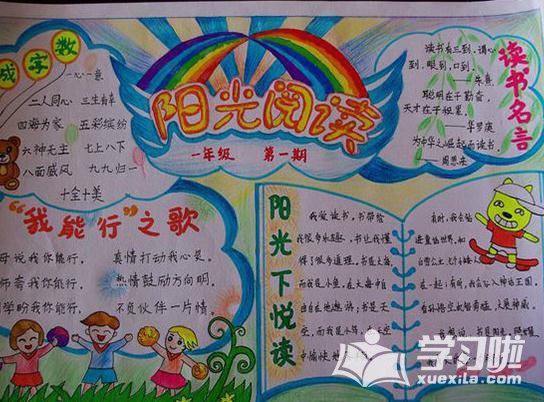 阳光阅读
一年级 第一期
成字数
一心一意
二人同心 三生有幸
四海为家 五彩缤纷
六神无主 七上八下
八面威风 九九归一
十全十美
读书名言
读书有三到,谓心
到,眼到,口到.
——朱熹
聪明在于勤奋,
天才在于积累.
——华罗庚
为中华之崛起而读书.
——周恩来
“我能行”之歌
母说我你能行, 真情打动我心裳.
师夸我你能行, 热情鼓励方向明.
同学盼我你能行, 不负伙伴一片情.
阳光下悦读
我爱读书,书带给
我很多乐趣,书让我懂
得了很多道理.书是大海,
而我是小鱼,在大海中自
由自在地遨游;书是天
空,而我是小鸟,在天空
中愉快地
有时,我会钻
进童话的世界,和
白雪公主
在一起;有时,我会钻入神话王国,
学习啦
xuexila.com